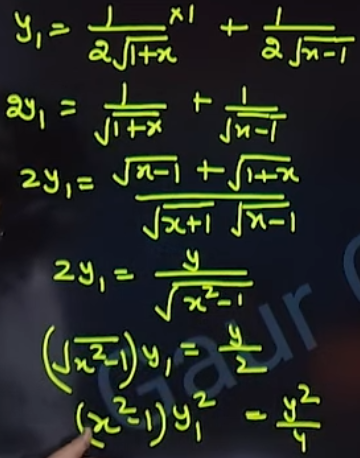 y₁ = 1/(2√(1+x)) ×1 + 1/(2√(x-1))
2y₁ = 1/√(1+x) + 1/√(x-1)
2y₁ = (√(x-1) + √(1+x))/(√(x+1) √(x-1))
2y₁ = y/√(x²-1)
(√(x²-1)) y₁ = y/2
(x²-1) y₁² = y²/4
Gaur